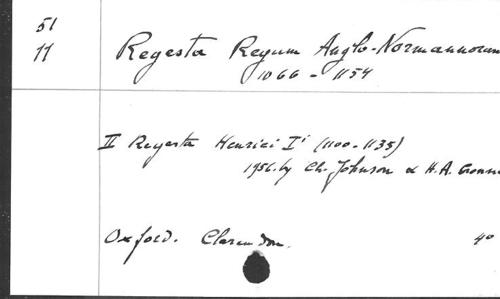 51
11
Regesta Regum Anglo-Normannorum
1066 - 1154
II Regesta Henrici Iⁱ (1100-1135)
1956. by Ch. Johnson & H.A. Cronne
Oxford. Clarendon.
4°